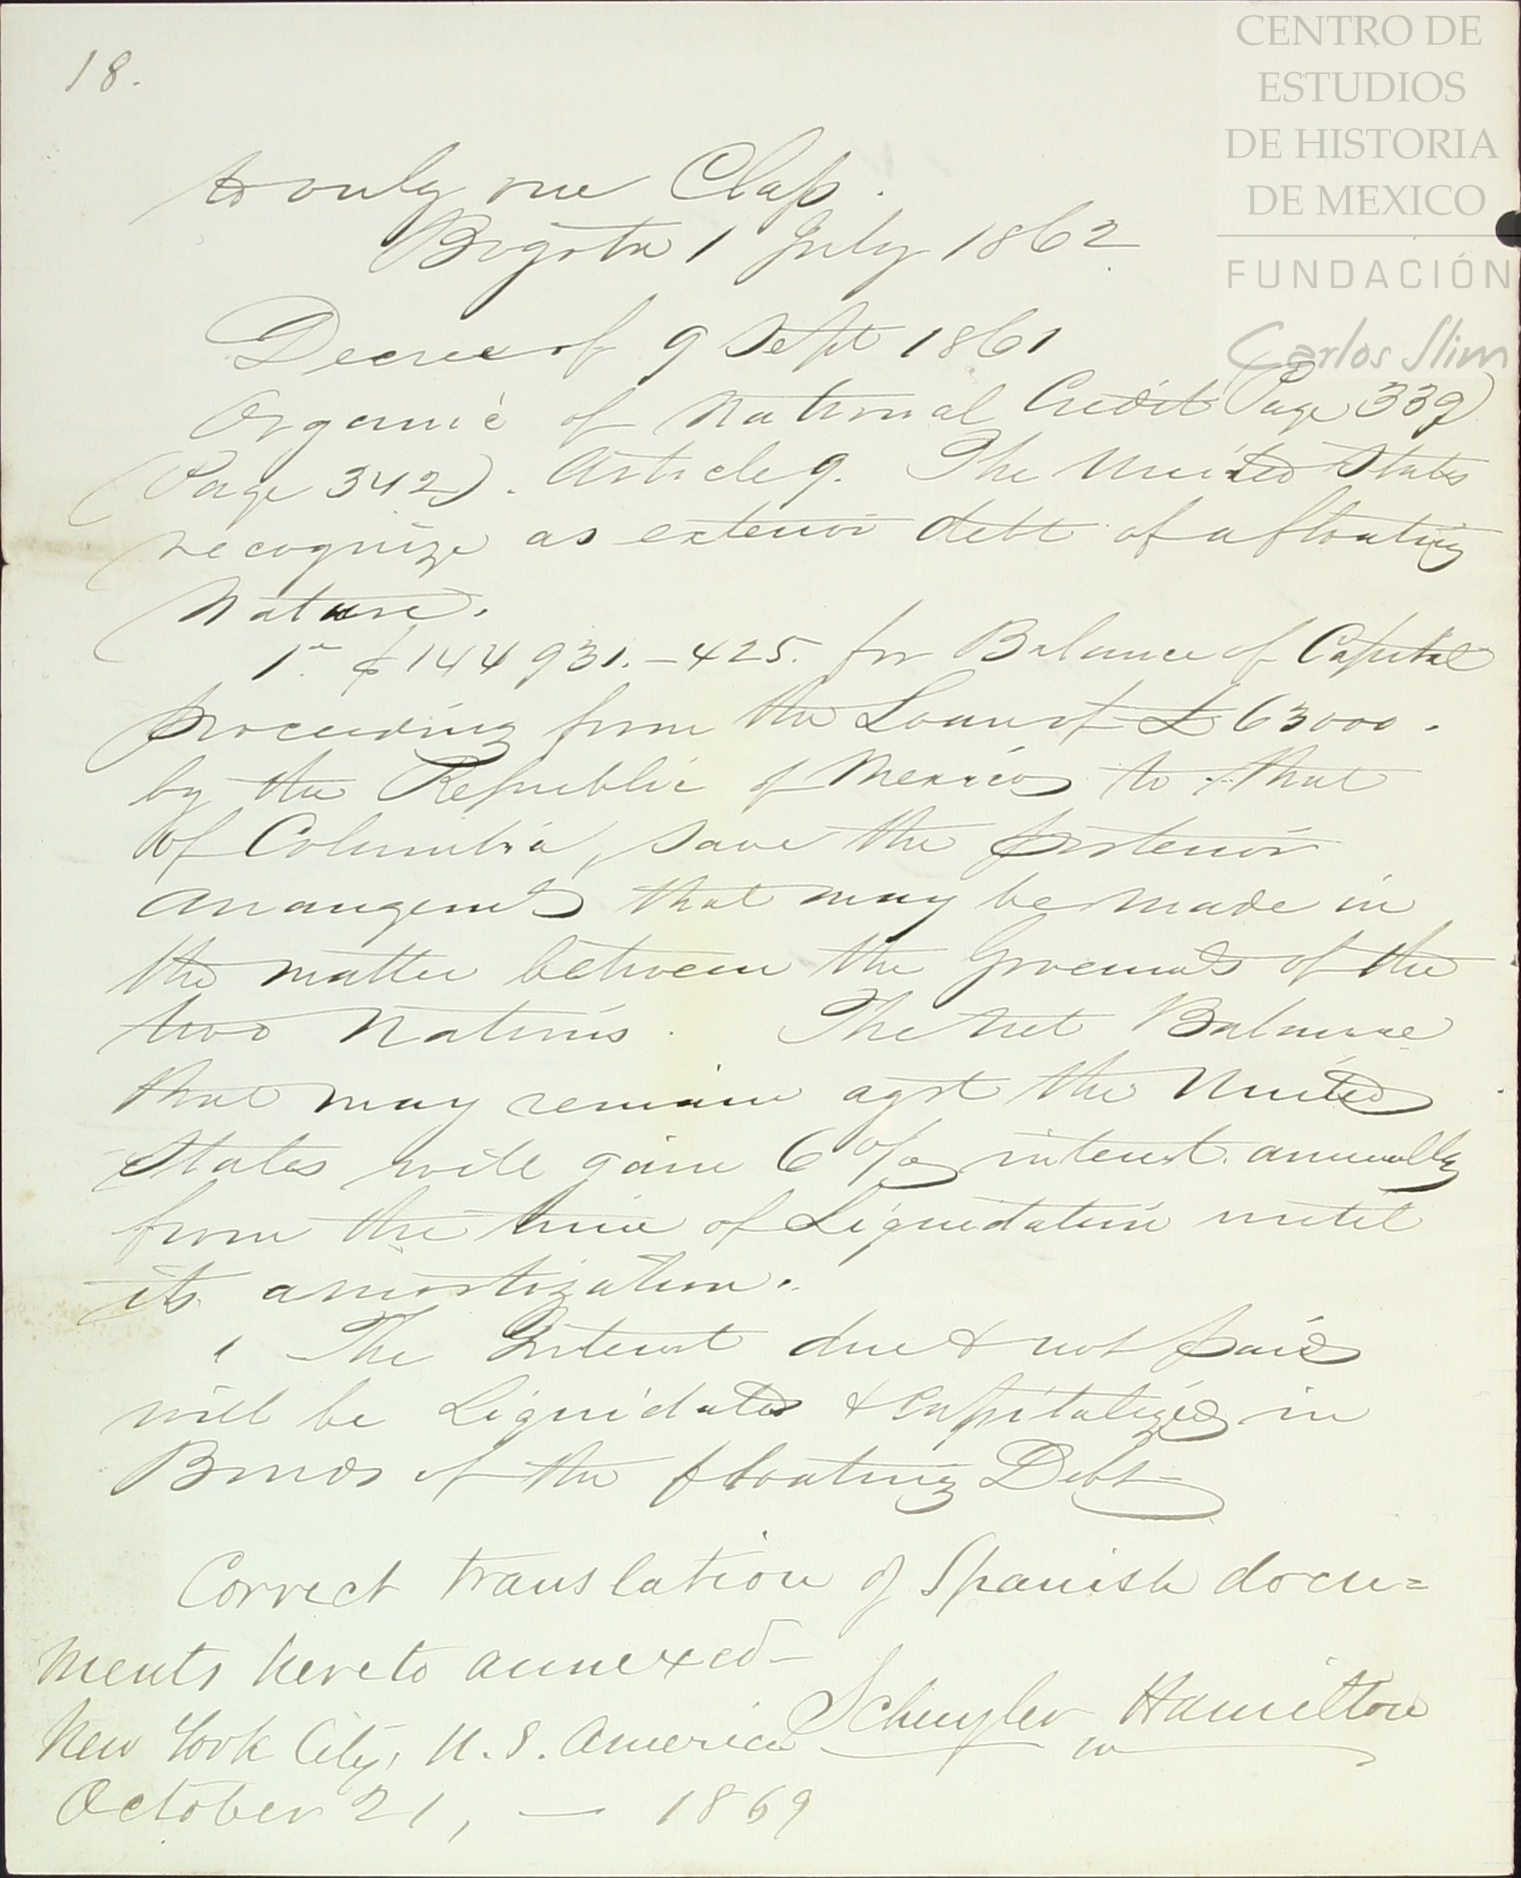 18.
CENTRO DE
ESTUDIOS
DE HISTORIA
DE MEXICO
FUNDACIÓN
Carlos Slim
to only one Class.
Bogota 1 July 1862
Decree of 9 Sept 1861
Organic of National Credit (Page 339)
(Page 342). Article 9. The United States
recognize as exterior debt of a floating
Nature.
1st $144931.-425. for Balance of Capital
proceeding from the Loan of £ 63000.
by the Republic of Mexico to that
of Columbia, save the posterior
arrangemts that may be made in
the matter between the Governmts of the
two Nations. The net Balance
that may remain agst the United
States will gain 6 o/o interest annually
from the time of Liquidation until
its amortization.
The Interest due & not paid
will be Liquidated & capitalized in
Bonds of the floating Debt
Correct translation of Spanish docu=
ments hereto annexed-
New York City, U. S. America Schuyler Hamilton
October 21, — 1869